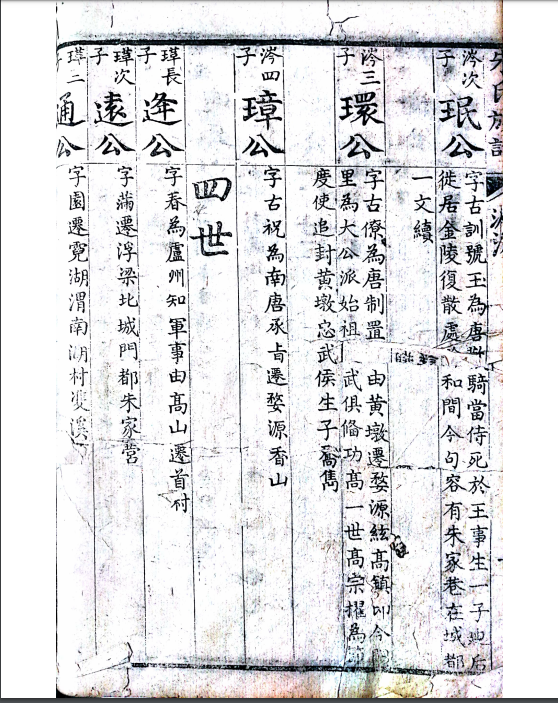 朱氏族譜
涔次子
珉公
字古訓號玉為唐 騎當侍死於王事生一子 后
徙居金陵復散處 和間今句容有朱家巷在城都
一文續
涔三子
環公
字古僚為唐制置 由黄墩遷婺源絃高鎮即今
里為大公派始祖 武俱俻功高一世高宗擢為
度使追封黄墩忠武侯生子 雋
涔四子
璋公
字古祝為南唐承旨遷婺源香山
四世
瑋長子
逄公
字春為廬州知軍事由高山遷首村
瑋次子
遠公
字滿遷浮梁北城門都朱家营
瑋二子
通公
字園遷霓湖渭南湖村雙溪